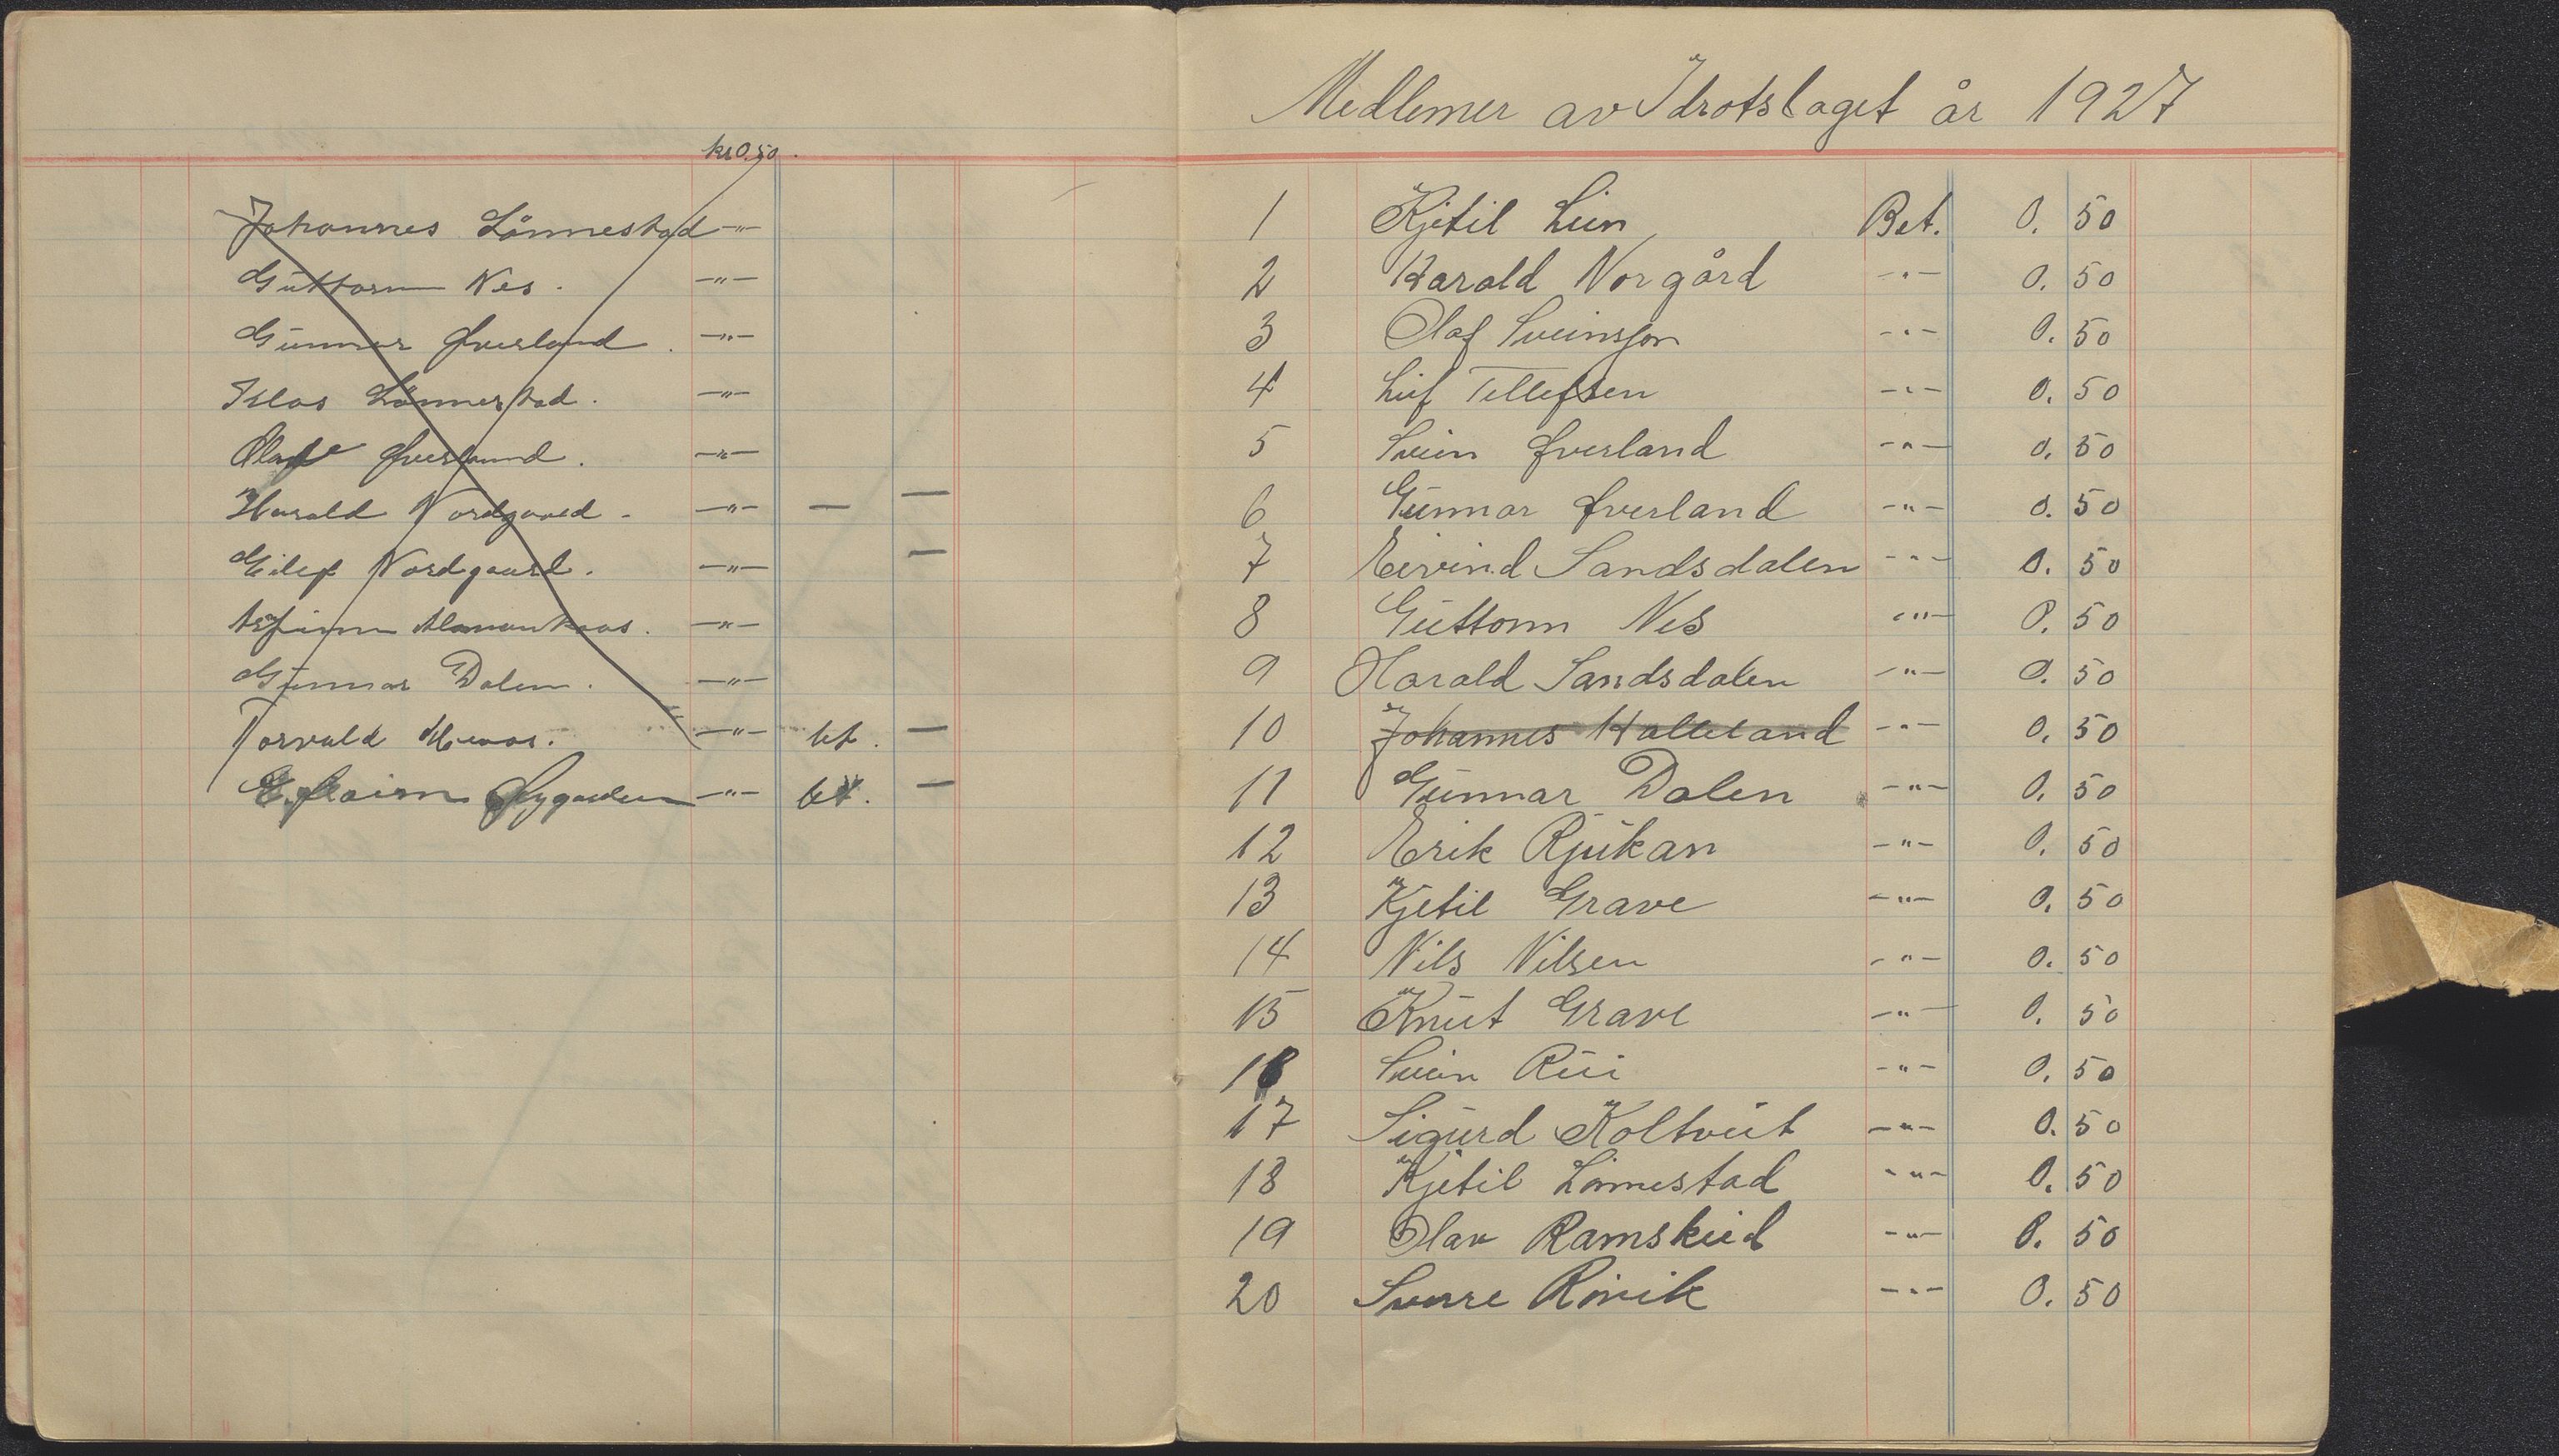 kr 0.50.
Johannes Lönnestad —"—
Guttorm Nes. —"—
Gunnar Øverland. —"—
Lönnestad. —"—
Olaf Øverland. —"—
Harald Nordgaard. —"— — —
Eilef Nordgaard. —"— —
—"—
Gunnar Dalen. —"—
Torvald —"— bet. —
—"— bet. —
Medlemer av Idrotslaget år 1927
1 Kjetil Lien Bet. 0. 50
2 Harald Norgård —"— 0. 50
3 Olaf Sveinsson —"— 0. 50
4 Leif Tellefsen —"— 0. 50
5 Svein Øverland —"— 0. 50
6 Gunnar Øverland —"— 0. 50
7 Eivind Sandsdalen —"— 0. 50
8 Guttorm Nes —"— 0. 50
9 Harald Sandsdalen —"— 0. 50
10 Johannes Halleland —"— 0. 50
11 Gunnar Dalen —"— 0. 50
12 Erik Rjukan —"— 0. 50
13 Kjetil Grave —"— 0. 50
14 Nils Nilsen —"— 0. 50
15 Knut Grave —"— 0. 50
16 Svein Rui —"— 0. 50
17 Sigurd Koltveit —"— 0. 50
18 Kjetil Lönnestad —"— 0. 50
19 Olav Ramskeid —"— 0. 50
20 Sverre —"— 0. 50